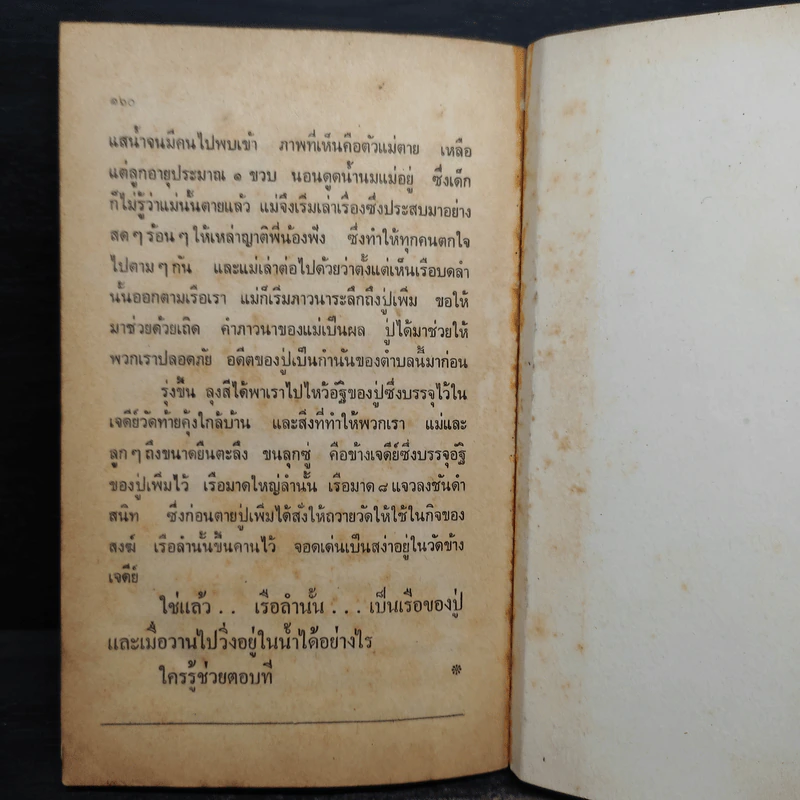 ๑๖๐
แสน้ำจนมีคนไปพบเข้า ภาพที่เห็นคือตัวแม่ตาย เหลือ
แต่ลูกอายุประมาณ ๑ ขวบ นอนดูดน้ำนมแม่อยู่ ซึ่งเด็ก
ก็ไม่รู้ว่าแม่นั้นตายแล้ว แม่จึงเริ่มเล่าเรื่องซึ่งประสบมาอย่าง
สด ๆ ร้อน ๆ ให้เหล่าญาติพี่น้องฟัง ซึ่งทำให้ทุกคนตกใจ
ไปตาม ๆ กัน และแม่เล่าต่อไปด้วยว่าตั้งแต่เห็นเรือบดลำ
นั้นออกตามเรือเรา แม่ก็เริ่มภาวนาระลึกถึงปู่เพิ่ม ขอให้
มาช่วยด้วยเถิด คำภาวนาของแม่เป็นผล ปู่ได้มาช่วยให้
พวกเราปลอดภัย อดีตของปู่เป็นกำนันของตำบลนี้มาก่อน
รุ่งขึ้น ลุงสีได้พาเราไปไหว้อัฐิของปู่ซึ่งบรรจุไว้ใน
เจดีย์วัดท้ายคุ้งใกล้บ้าน และสิ่งที่ทำให้พวกเรา แม่และ
ลูก ๆ ถึงขนาดยืนตะลึง ขนลุกซู่ คือข้างเจดีย์ซึ่งบรรจุอัฐิ
ของปู่เพิ่มไว้ เรือมาดใหญ่ลำนั้น เรือมาด ๘ แจวลงชันดำ
สนิท ซึ่งก่อนตายปู่เพิ่มได้สั่งให้ถวายวัดให้ใช้ในกิจของ
สงฆ์ เรือลำนั้นขึ้นคานไว้ จอดเด่นเป็นสง่าอยู่ในวัดข้าง
เจดีย์
ใช่แล้ว . . เรือลำนั้น . . . เป็นเรือของปู่
และเมื่อวานไปวิ่งอยู่ในน้ำได้อย่างไร
ใครรู้ช่วยตอบที *